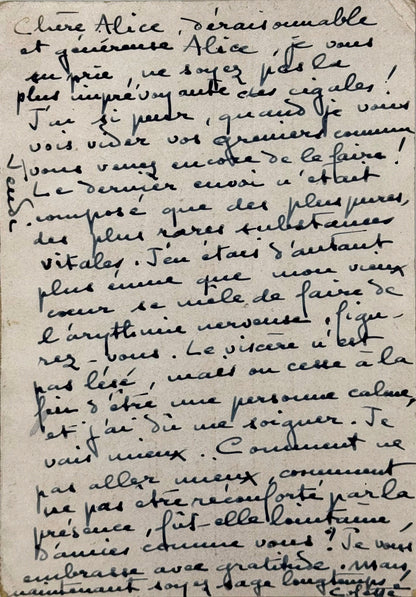 Chère Alice, déraisonnable
et généreuse Alice, je vous
en prie, ne soyez pas la
plus imprévoyante des cigales!
J'ai si peur, quand je vous
vois vider vos greniers comme
vous venez encore de le faire!
Le dernier envoi n'était
composé que des plus pures,
des plus rares substances
vitales. J'en étais d'autant
plus émue que mon vieux
cœur se mêle de faire de
l'arythmie nerveuse, figu-
rez-vous. Le viscère n'est
pas lésé, mais on cesse à la
fin d'être une personne calme,
et j'ai dû me soigner. Je
vais mieux. Comment ne
pas aller mieux, comment
ne pas être réconforté par la
présence, fût-elle lointaine,
d'amies comme vous? Je vous
embrasse avec gratitude. Mais,
maintenant soyez sage longtemps!
Colette